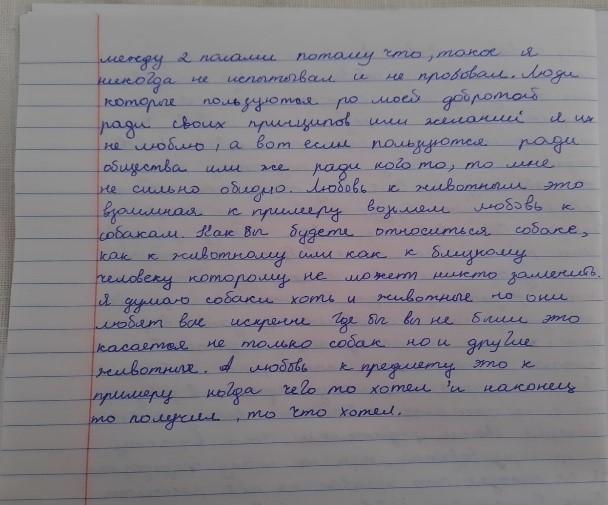 между 2 полами потому что, такое я
никогда не испытывал и не пробовал. Люди
которые пользуются по моей добротой
ради своих принципов или желаний я их
не люблю, а вот если пользуются ради
общества или же ради кого то, то мне
не сильно обидно. Любовь к животным это
взаимная к примеру возмем любовь к
собакам. Как вы будете относиться собаке,
как к животному или как к близкому
человеку которому не может никто заменить.
Я думаю собаки хоть и животные но они
любят вас искренне где бы вы не были это
касается не только собак но и другие
животные. А любовь к предмету это к
примеру когда чего то хотел и наконец
то получил, то что хотел.